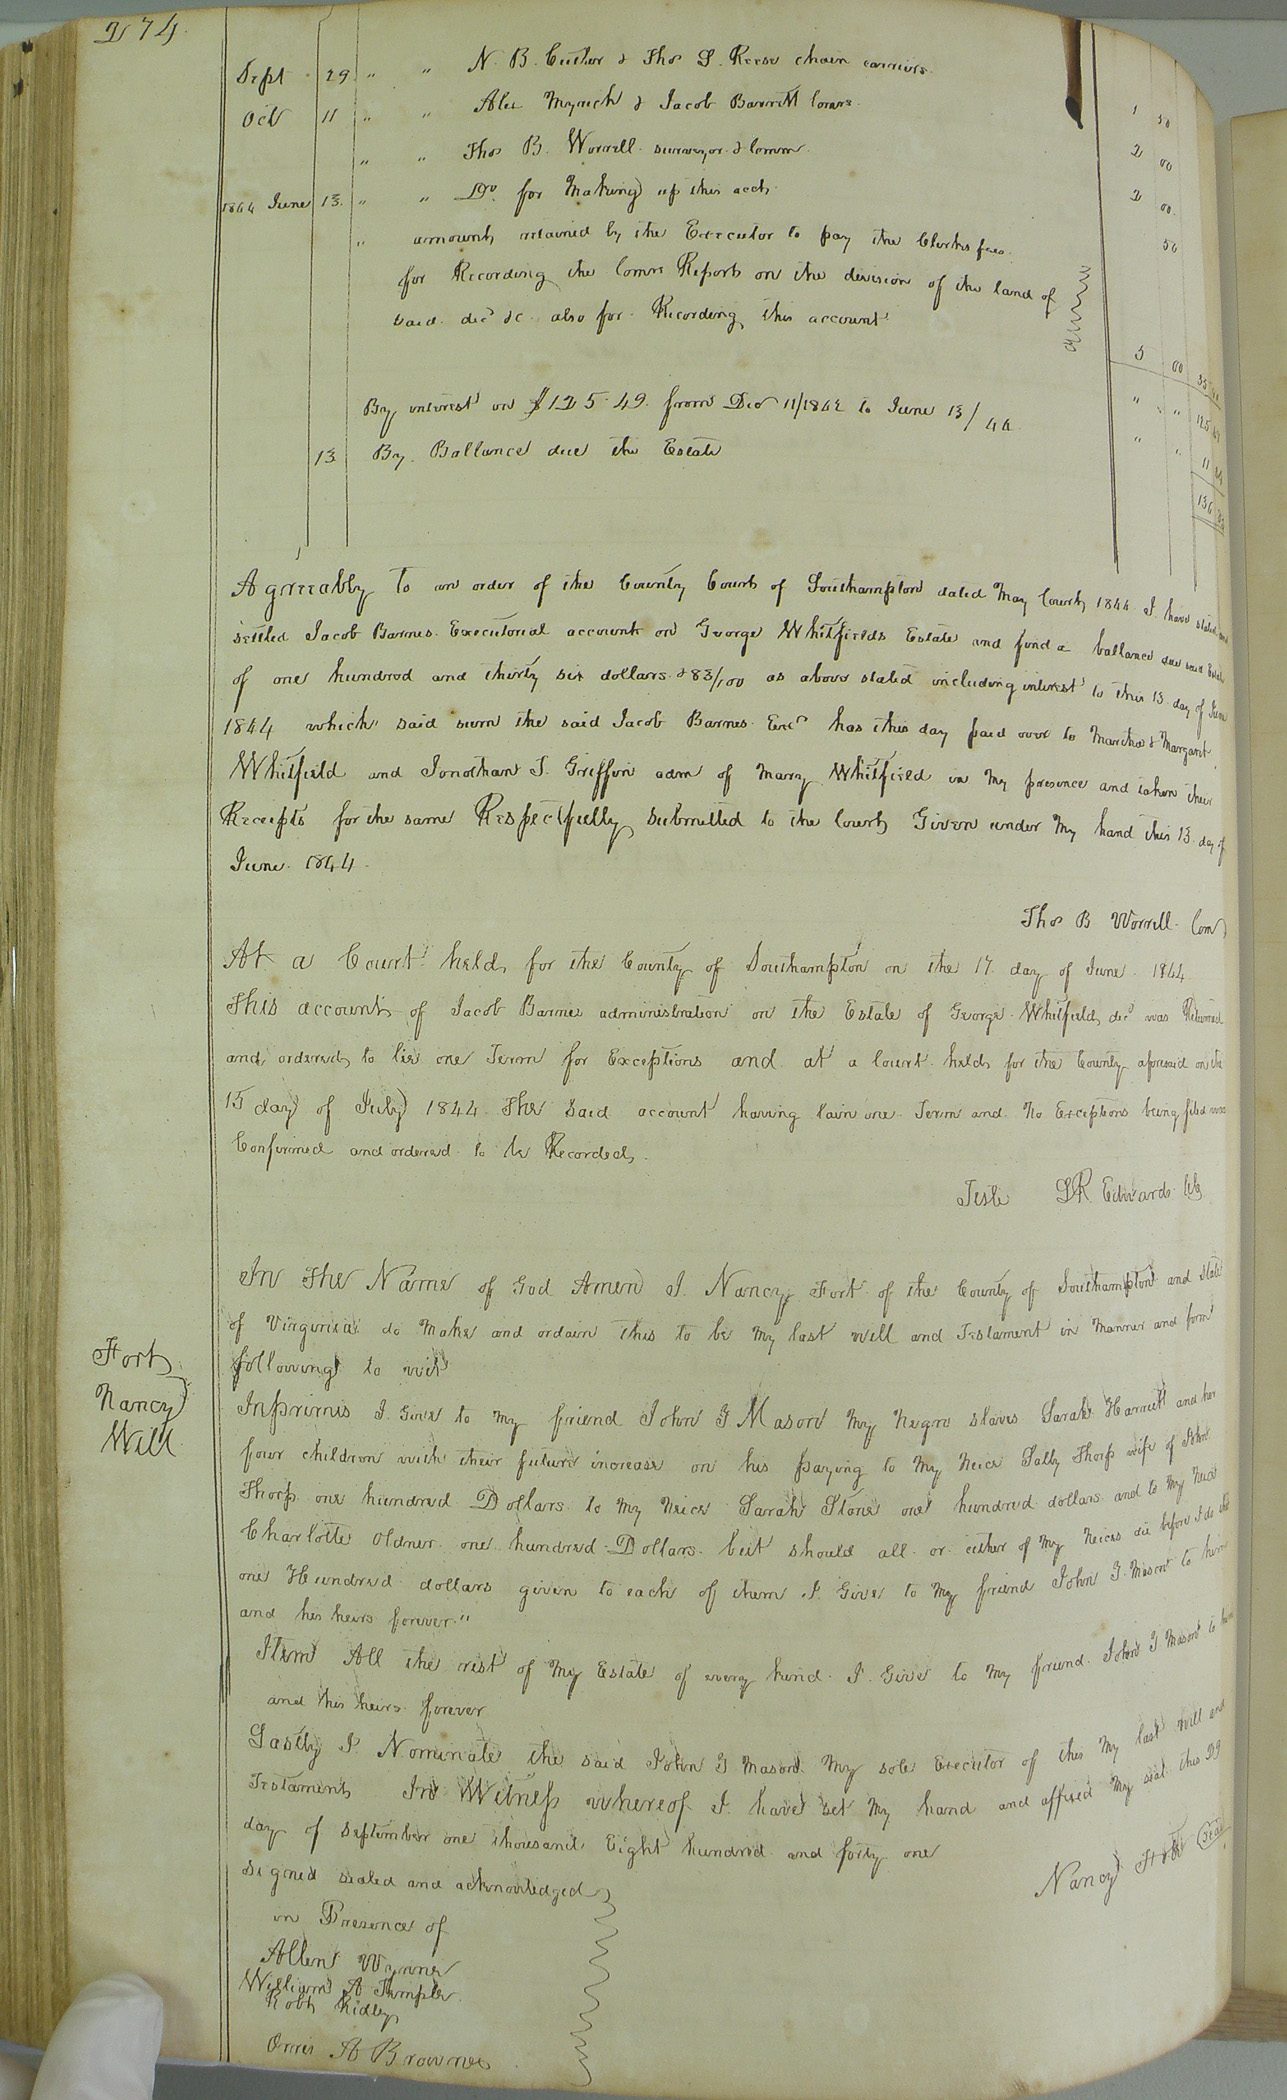 274.
Sept 29 " " N. B. Cutlar & Thos S. Reese chain carriers 1 50
Oct 11 " " Alex Myrick & Jacob Barrett Comrs. 2 00
" " Thos B. Worrell surveyor & Commr 2 00
1844 June 13. " " Do. for Making up this acct. 50
" amount retained by the Executor to pay the Clerks fees
for Recording the Comrs Report on the division of the land of
said decd &c. also for Recording this account
5 00
By interest on $125.49 from Dec 11/1842 to June 13/44
13 By Ballance due the Estate
Agreeably to an order of the County Court of Southampton dated May Court 1844 I have stated and
settled Jacob Barnes Executorial account on George Whitfields Estate and find a ballance due said Estate
of one hundred and thirty six dollars & 83/100 as above stated including interest to this 13 day of June
1844 which said sum the said Jacob Barnes Exer has this day paid over to Martha & Margaret
Whitfield and Jonathan J. Griffin adm of Mary Whitfield in My presence and taken their
Receipts for the same Respectfully submitted to the Court Given under My hand this 13 day of
June 1844
Thos B Worrell Com
At a Court held for the County of Southampton on the 17 day of June 1844
This account of Jacob Barnes administration on the Estate of George Whitfield decd was Returned
and ordered to lie one Term for Exceptions and at a Court held for the County aforesaid on the
15 day of July 1844 The said account having lain one Term and No Exceptions being filed was
Confirmed and ordered to be Recorded.
Teste LR Edwards Clk
Fort
Nancy
Will
In The Name of God Amen I Nancy Fort of the County of Southampton and State
of Virginia do Make and ordain this to be My last will and Testament in Manner and form
following to wit
Inprimis I Give to My friend John G Mason My Negro slaves Sarah Harriett and her
four children with their future increase on his paying to My Neice Sally Thorp wife of John
Thorp one hundred Dollars to My Neice Sarah Stone one hundred dollars and to My Neice
Charlotte Oldner one hundred Dollars but should all or either of My Neices die before I do the
one Hundred dollars given to each of them I Give to My friend John G. Mason to him
and his heirs forever."
Item All the rest of My Estate of every kind I Give to My friend John G Mason to him
and his heirs forever
Lastly I Nominate the said John G Mason My sole Executor of this My last will and
Testament In Witness whereof I have set My hand and affixed My seal this 29
day of September one thousand Eight hundred and forty one
Nancy Fort Seal
Signed sealed and acknowledged
in Presence of
Allen Wynne
William A Temple
Robt Ridley
Orris A Browne